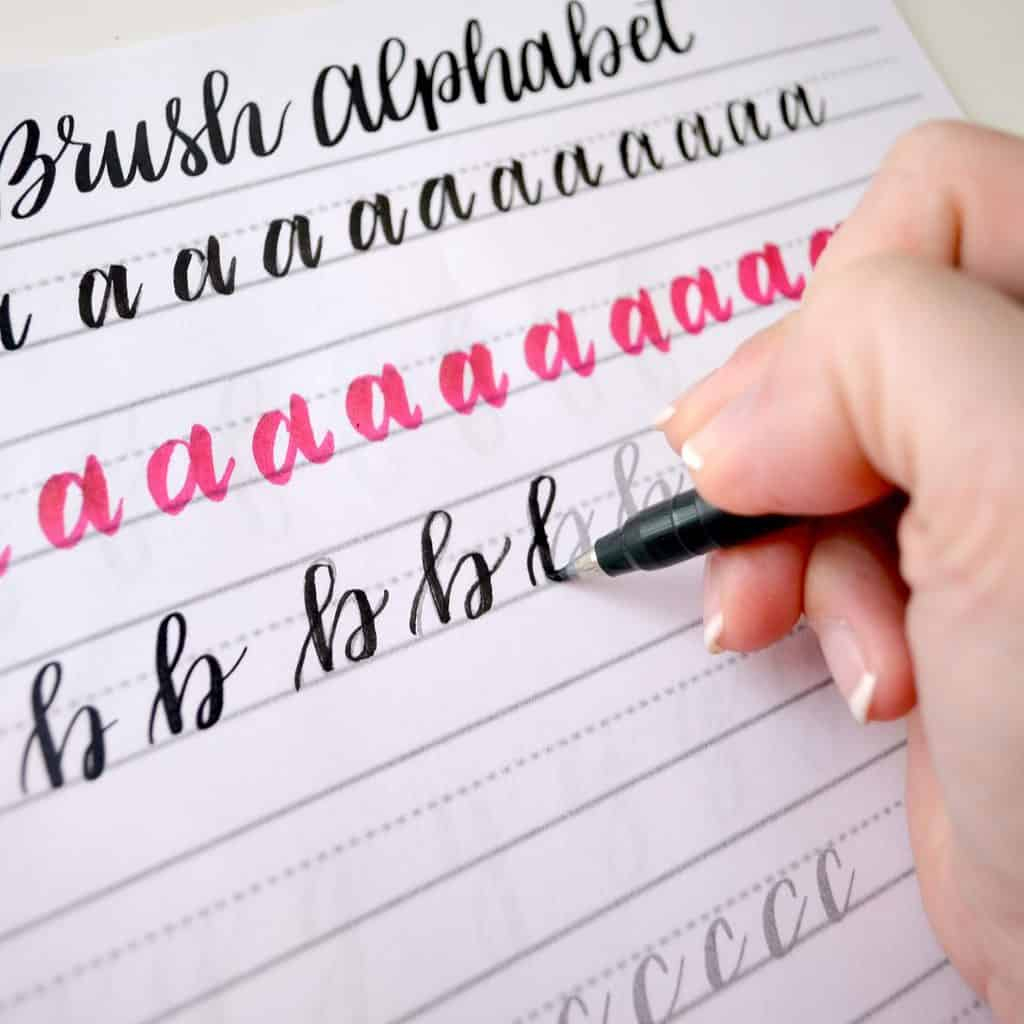 Brush Alphabet
a a a a a a a a a a a a
a a a a a a a a a a a
b b b b b b
c c c c c